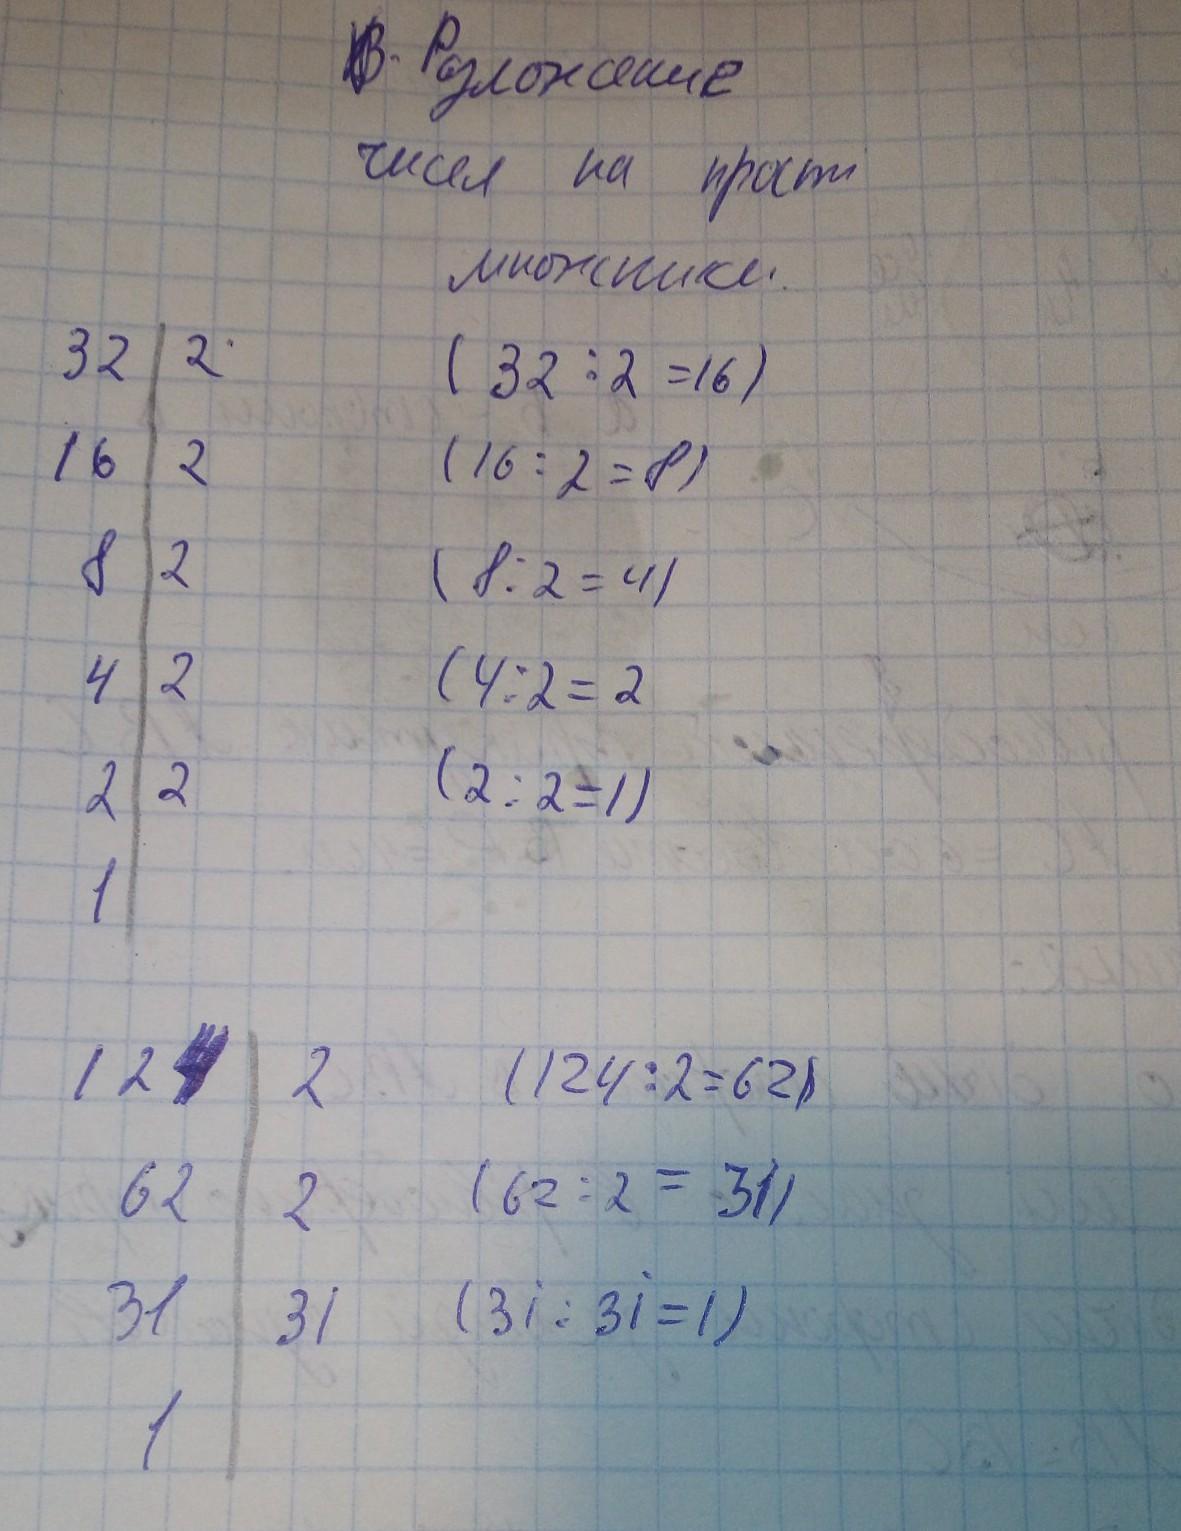 В. Разложение
чисел на прост
множники.
32 | 2 (32 : 2 = 16)
16 | 2 (16 : 2 = 8)
8 | 2 (8 : 2 = 4)
4 | 2 (4 : 2 = 2
2 | 2 (2 : 2 = 1)
1
124 | 2 (124 : 2 = 62)
62 | 2 (62 : 2 = 31)
31 | 31 (31 : 31 = 1)
1